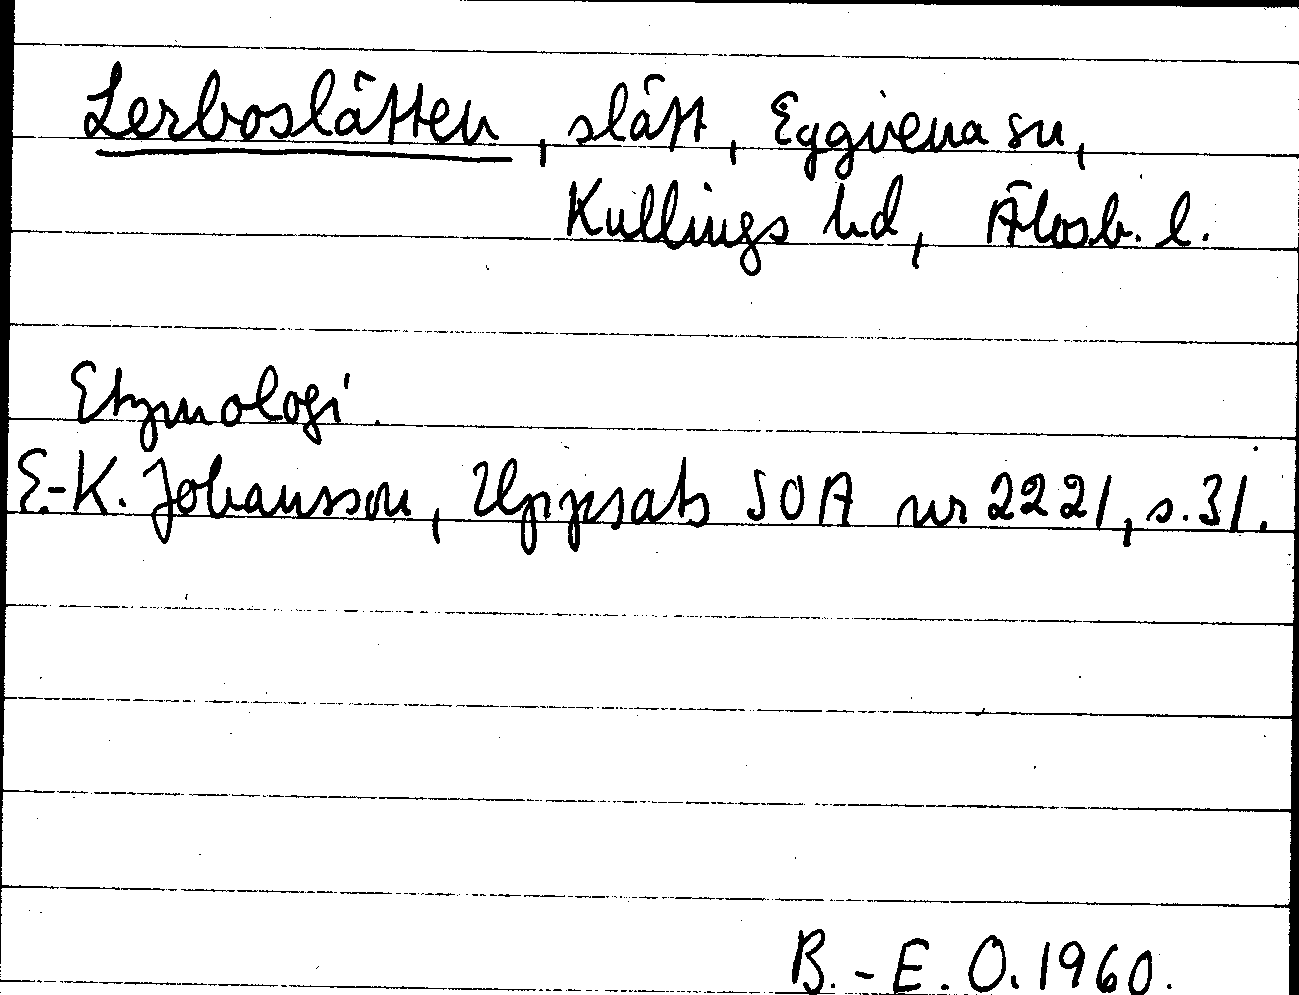 Lerboslätten, slätt, Eggvena sn,
Kullings hd, Älvsb. l.
Etymologi.
E.-K. Johansson, Uppsats SOA nr 2221, s. 31.
B.-E. O. 1960.